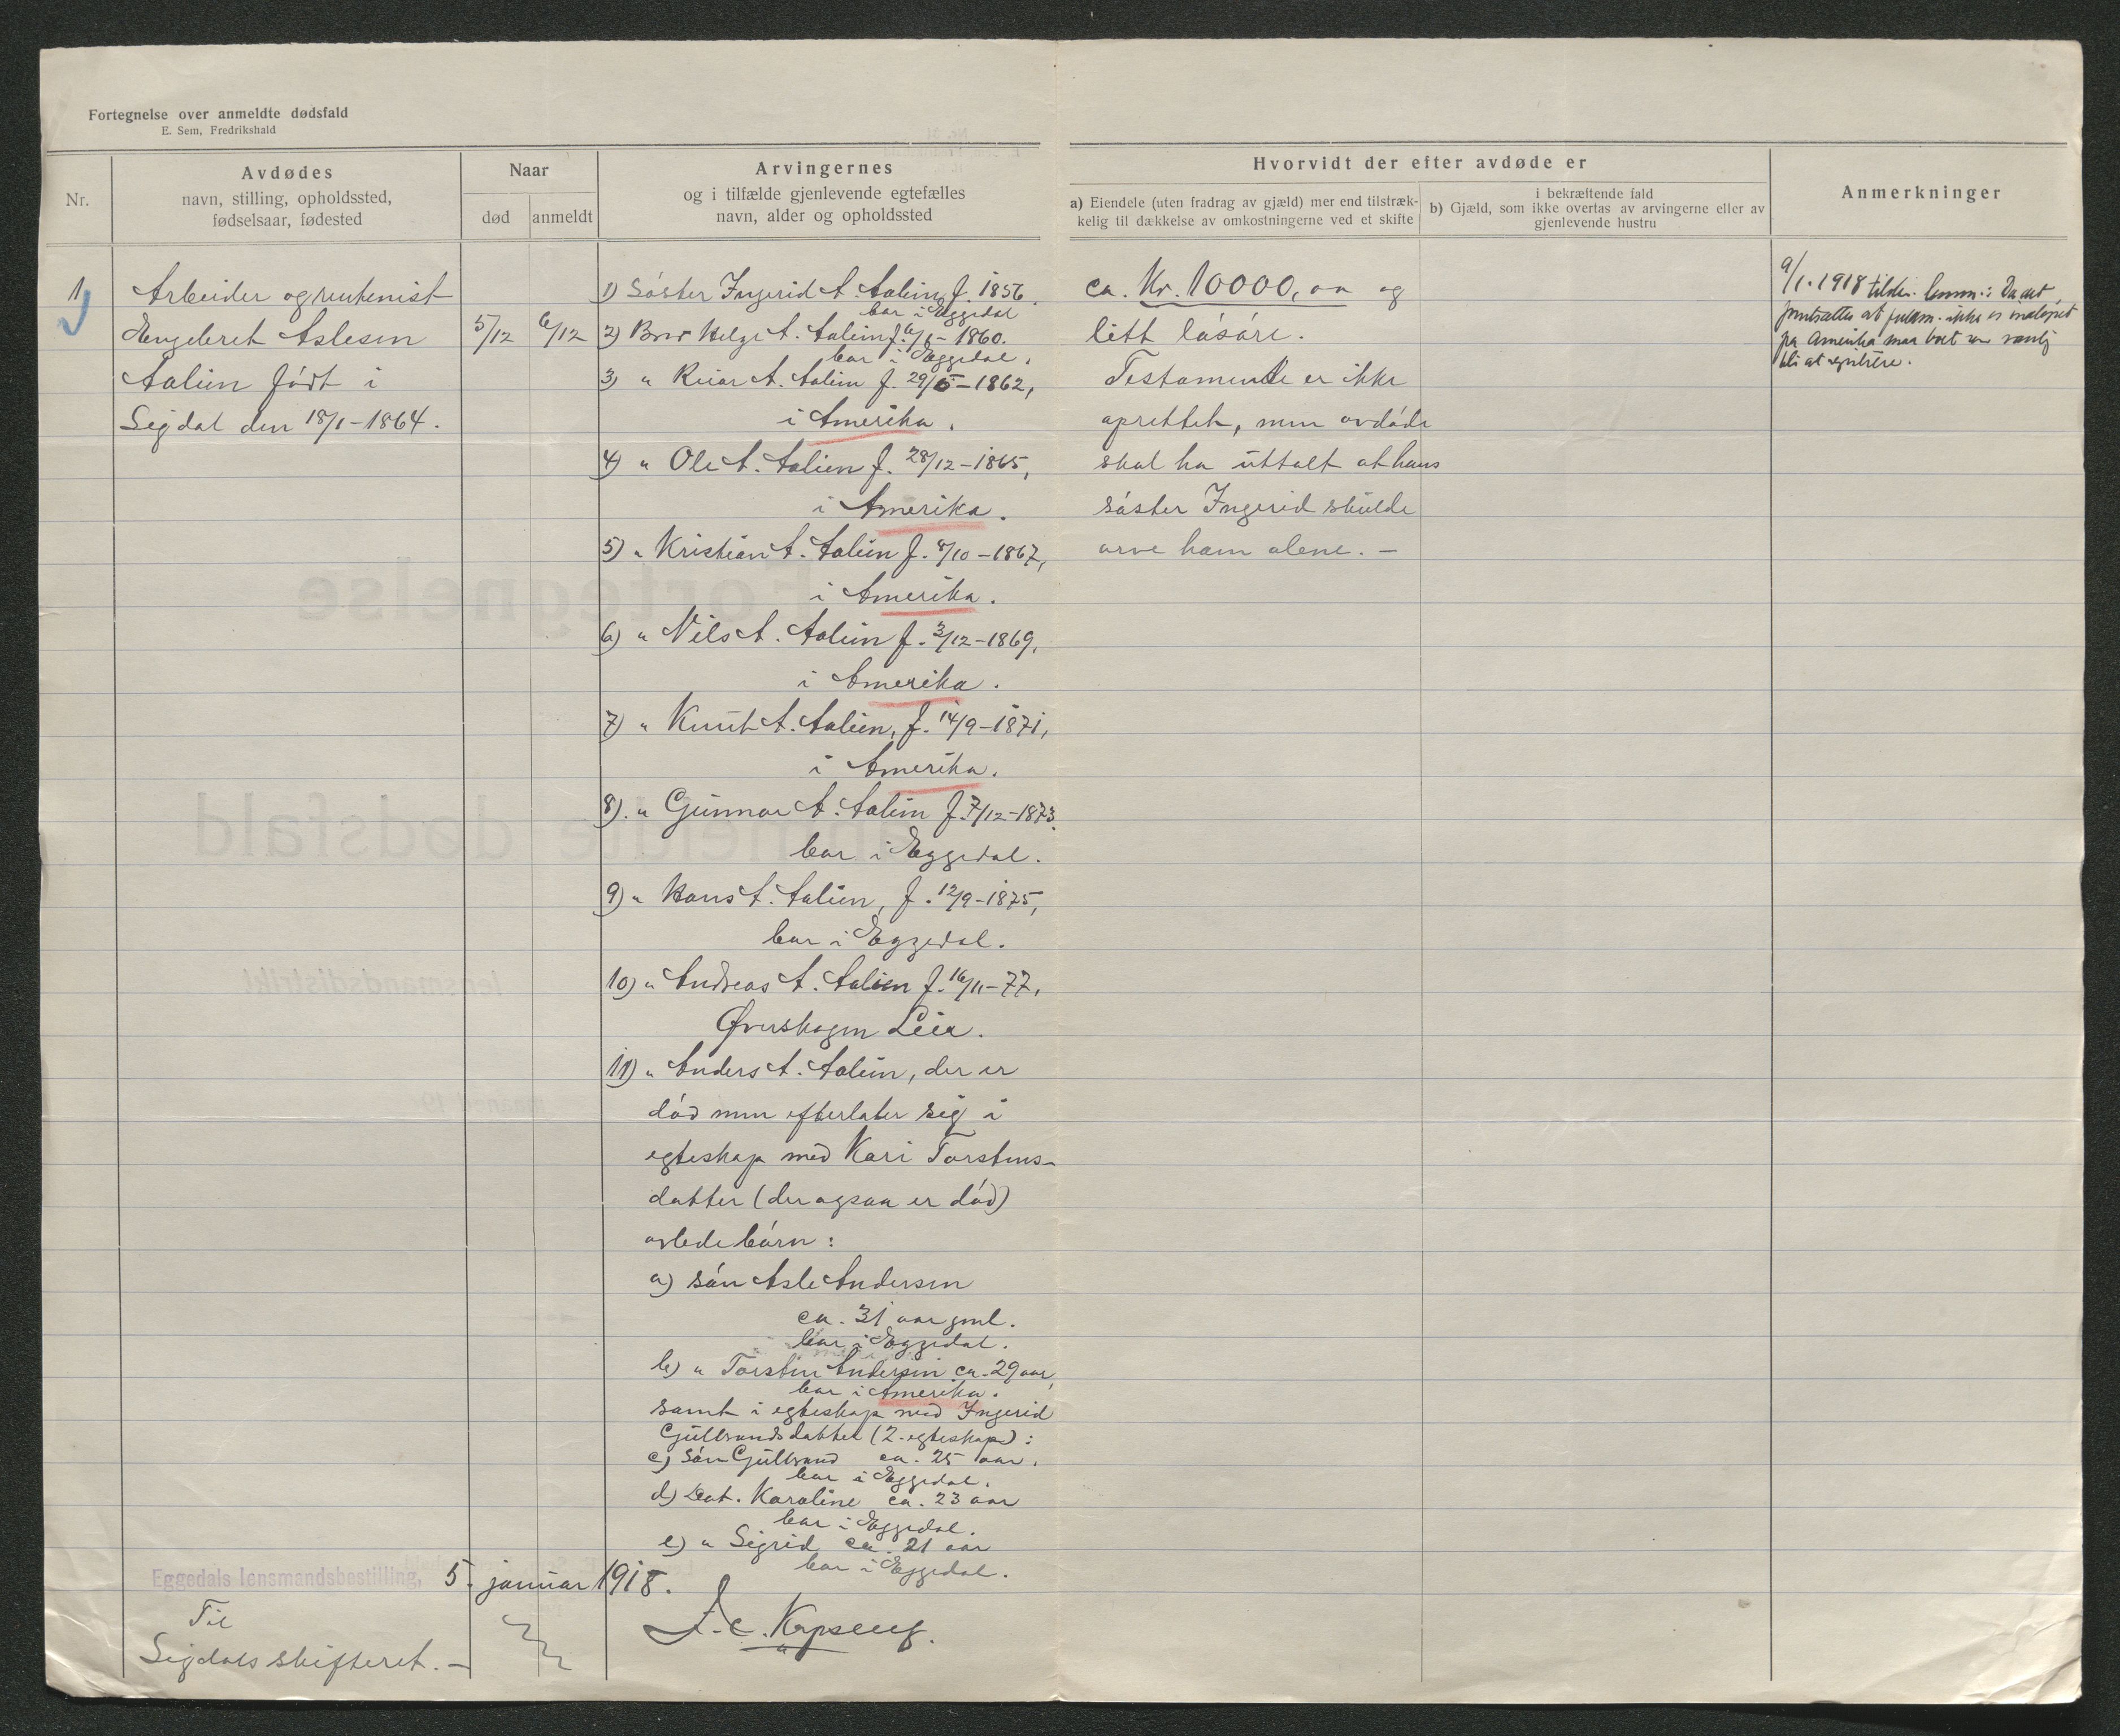 Fortegnelse over anmeldte dødsfald
E. Sem, Fredrikshald
Nr.
Avdødes
navn, stilling, opholdssted,
fødselsaar, fødested
Naar
død
anmeldt
Arvingernes
og i tilfælde gjenlevende egtefælles
navn, alder og opholdssted
Hvorvidt der efter avdøde er
a) Eiendele (uten fradrag av gjæld) mer end tilstræk-
kelig til dækkelse av omkostningerne ved et skifte
i bekræftende fald
b) Gjæld, som ikke overtas av arvingerne eller av
gjenlevende hustru
Anmerkninger
1
Arbeider og rentenist
Engebret Aslesen
Aalien født i
Sigdal den 18/1-1864.
5/12
6/12
1) Søster Ingerid A. Aalien f. 1856.
bor i Eggedal
2) Bror Helge A. Aalien f. 6/6-1860.
bor i Eggedal.
3) " Reiar A. Aalien f. 29/5-1862,
i Amerika.
4) " Ole A. Aalien f. 28/12-1865,
i Amerika.
5) " Kristian A. Aalien f. 8/10-1867,
i Amerika.
6) " Nils A. Aalien f. 3/12-1869,
i Amerika.
7) " Knut A. Aalien, f. 14/9-1871,
i Amerika.
8). " Gunnar A. Aalien f. 7/12-1873.
bor i Eggedal.
9) " Hans A. Aalien, f. 12/9-1875,
bor i Eggedal.
10) " Andreas A. Aalien f. 16/11-77,
Øverskogen Lier.
11) " Anders A. Aalien, der er
død men efterlater sig i
egteskap med Kari Torstens-
datter (der ogsaa er død)
avlede børn:
a) søn Asle Andersen
ca. 31 aar gml.
bor i Eggedal.
b) " Torsten Andersen ca. 29 aar,
bor i Amerika.
samt i egteskap med Ingerid
Gulbrandsdatter (2. egteskap):
c) Søn Gulbrand ca. 25 aar.
bor i Eggedal.
d) Dat. Karoline ca. 23 aar
bor i Eggedal.
e) " Sigrid ca. 21 aar
bor i Eggedal.
ca. Kr. 10000,00 og
litt løsøre.
Testamente er ikke
oprettet, men avdøde
skal ha uttalt at hans
søster Ingerid skulde
arve ham alene. -
9/1-1918 Da det
at ikke er
pa Amerika maa
bli at
Eggedals lensmandsbestilling, 5. januar 1918.
Til
Sigdals skifteret. -